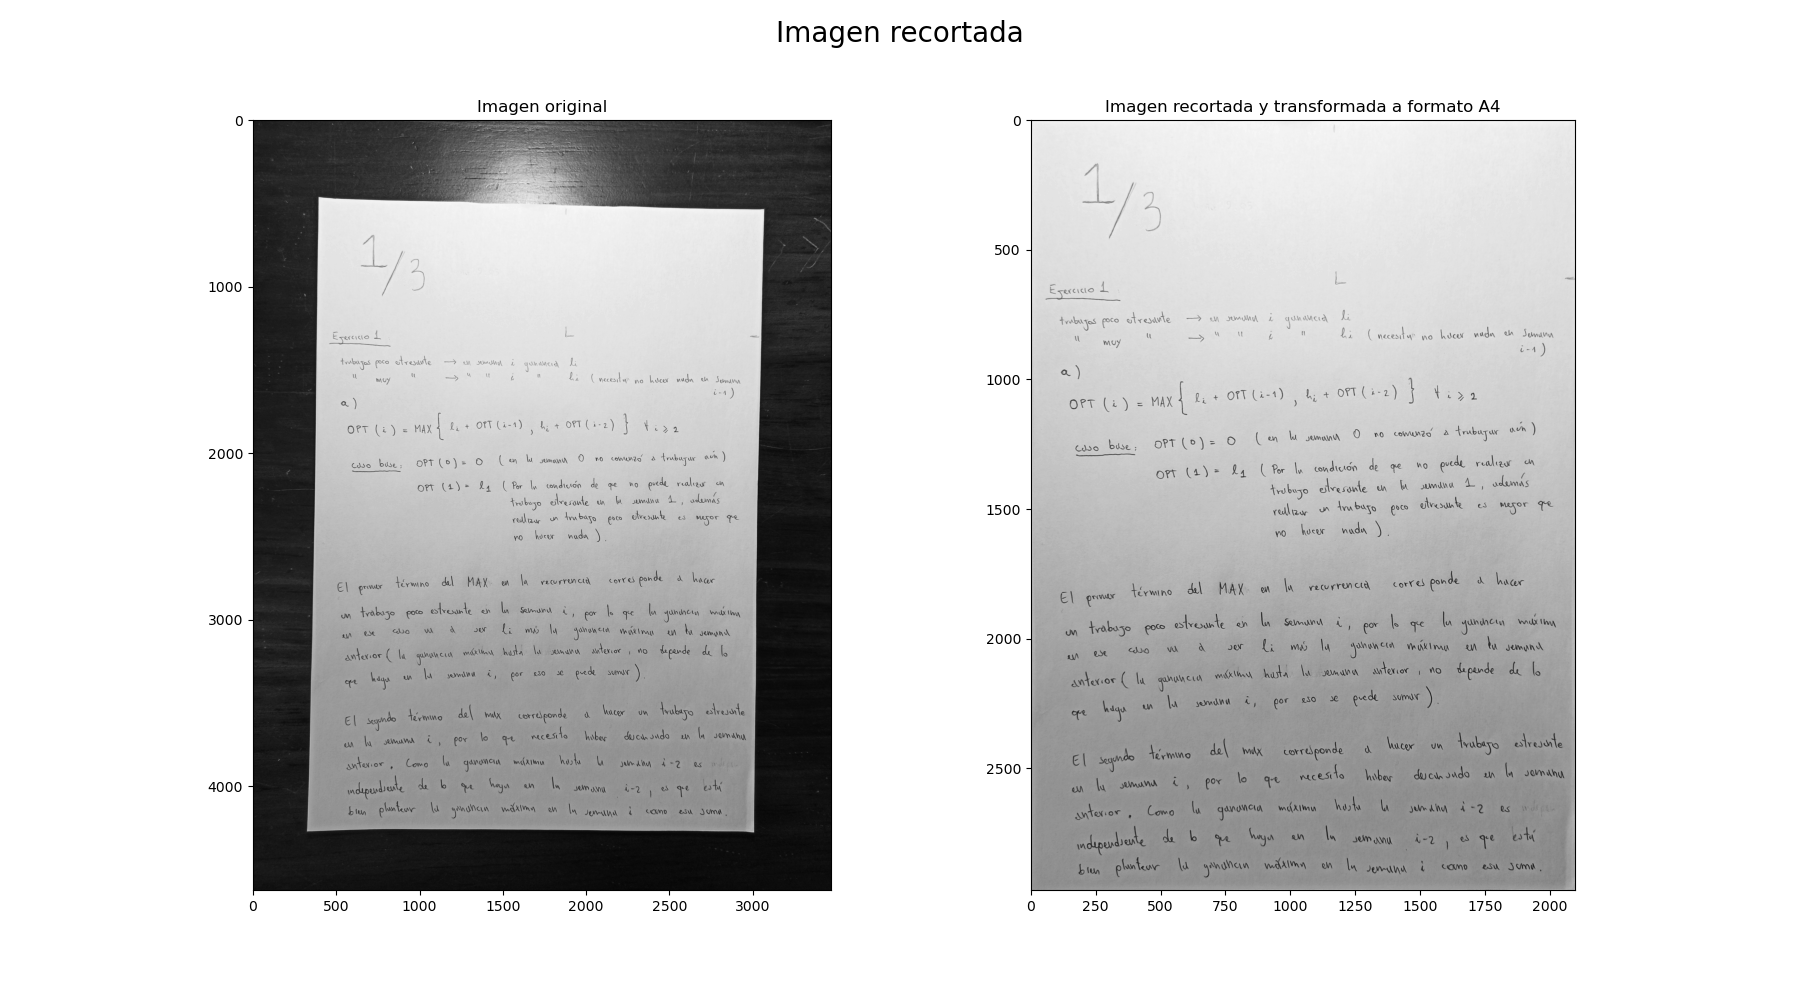 Imagen recortada
Imagen original
0
1000
2000
3000
4000
0 500 1000 1500 2000 2500 3000
1/3
Ejercicio 1
trabajos poco estresante → en semana i ganancia li
" muy " → " " i " hi (necesita no hacer nada en semana
i-1)
a)
OPT (i) = MAX { li + OPT (i-1) , hi + OPT (i-2) } ∀ i ⩾ 2
caso base: OPT (0) = 0 (en la semana 0 no comenzó a trabajar aún)
OPT (1) = l1 (Por la condición de que no puede realizar un
trabajo estresante en la semana 1, además
realizar un trabajo poco estresante es mejor que
no hacer nada).
El primer término del MAX en la recurrencia corresponde a hacer
un trabajo poco estresante en la semana i, por lo que la ganancia máxima
en ese caso va a ser li más la ganancia máxima en la semana
anterior (la ganancia máxima hasta la semana anterior, no depende de lo
que haga en la semana i, por eso se puede sumar).
El segundo término del max corresponde a hacer un trabajo estresante
en la semana i, por lo que necesito haber descansado en la semana
anterior. Como la ganancia máxima hasta la semana i-2 es
independiente de lo que haga en la semana i-2, es que está
bien plantear la ganancia máxima en la semana i como esa suma.
Imagen recortada y transformada a formato A4
0
500
1000
1500
2000
2500
0 250 500 750 1000 1250 1500 1750 2000
1/3
Ejercicio 1
trabajos poco estresante → en semana i ganancia li
" muy " → " " i " hi (necesita no hacer nada en semana
i-1)
a)
OPT (i) = MAX { li + OPT (i-1) , hi + OPT (i-2) } ∀ i ⩾ 2
caso base: OPT (0) = 0 (en la semana 0 no comenzó a trabajar aún)
OPT (1) = l1 (Por la condición de que no puede realizar un
trabajo estresante en la semana 1, además
realizar un trabajo poco estresante es mejor que
no hacer nada).
El primer término del MAX en la recurrencia corresponde a hacer
un trabajo poco estresante en la semana i, por lo que la ganancia máxima
en ese caso va a ser li más la ganancia máxima en la semana
anterior (la ganancia máxima hasta la semana anterior, no depende de lo
que haga en la semana i, por eso se puede sumar).
El segundo término del max corresponde a hacer un trabajo estresante
en la semana i, por lo que necesito haber descansado en la semana
anterior. Como la ganancia máxima hasta la semana i-2 es
independiente de lo que haga en la semana i-2, es que está
bien plantear la ganancia máxima en la semana i como esa suma.